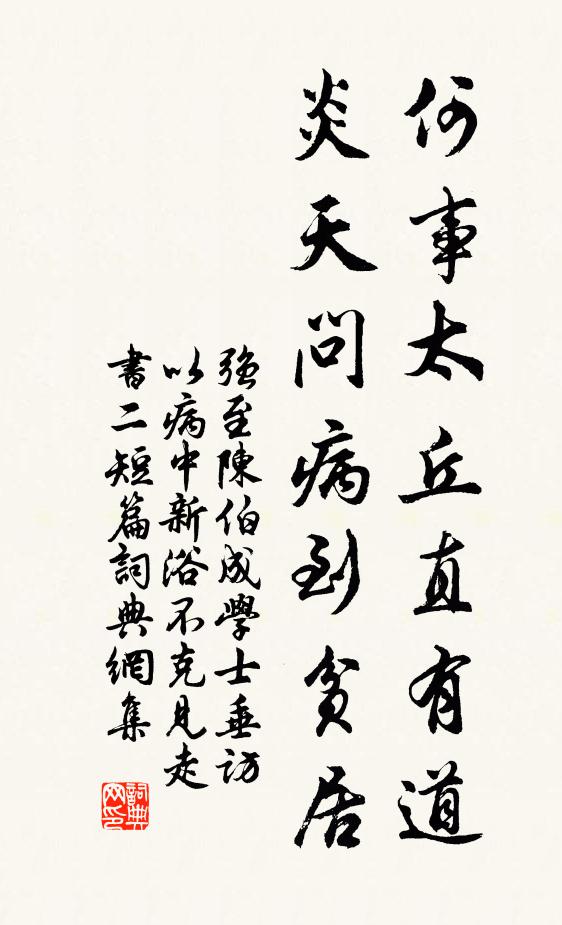 何事太丘直有道
炎天問病到貧居
强至陳伯成學士垂訪
以病中新浴不克見走
書二短篇詞典網集
詞典网印